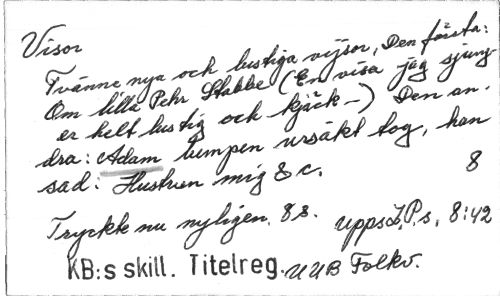 Visor
Tvänne nya och lustiga vijsor, Den första:
Om lilla Pehr Stabbe (En visa jag sjung
er helt lustig och kjäck-) Den an-
dra: Adam lumpen ursäkt tog, han
sad: Hustrun mig &c. 8
Tryckt nu nyligen. 8 s. Upps. P.s, 8:42
KB:s skill. Titelreg. UUB Folkv.